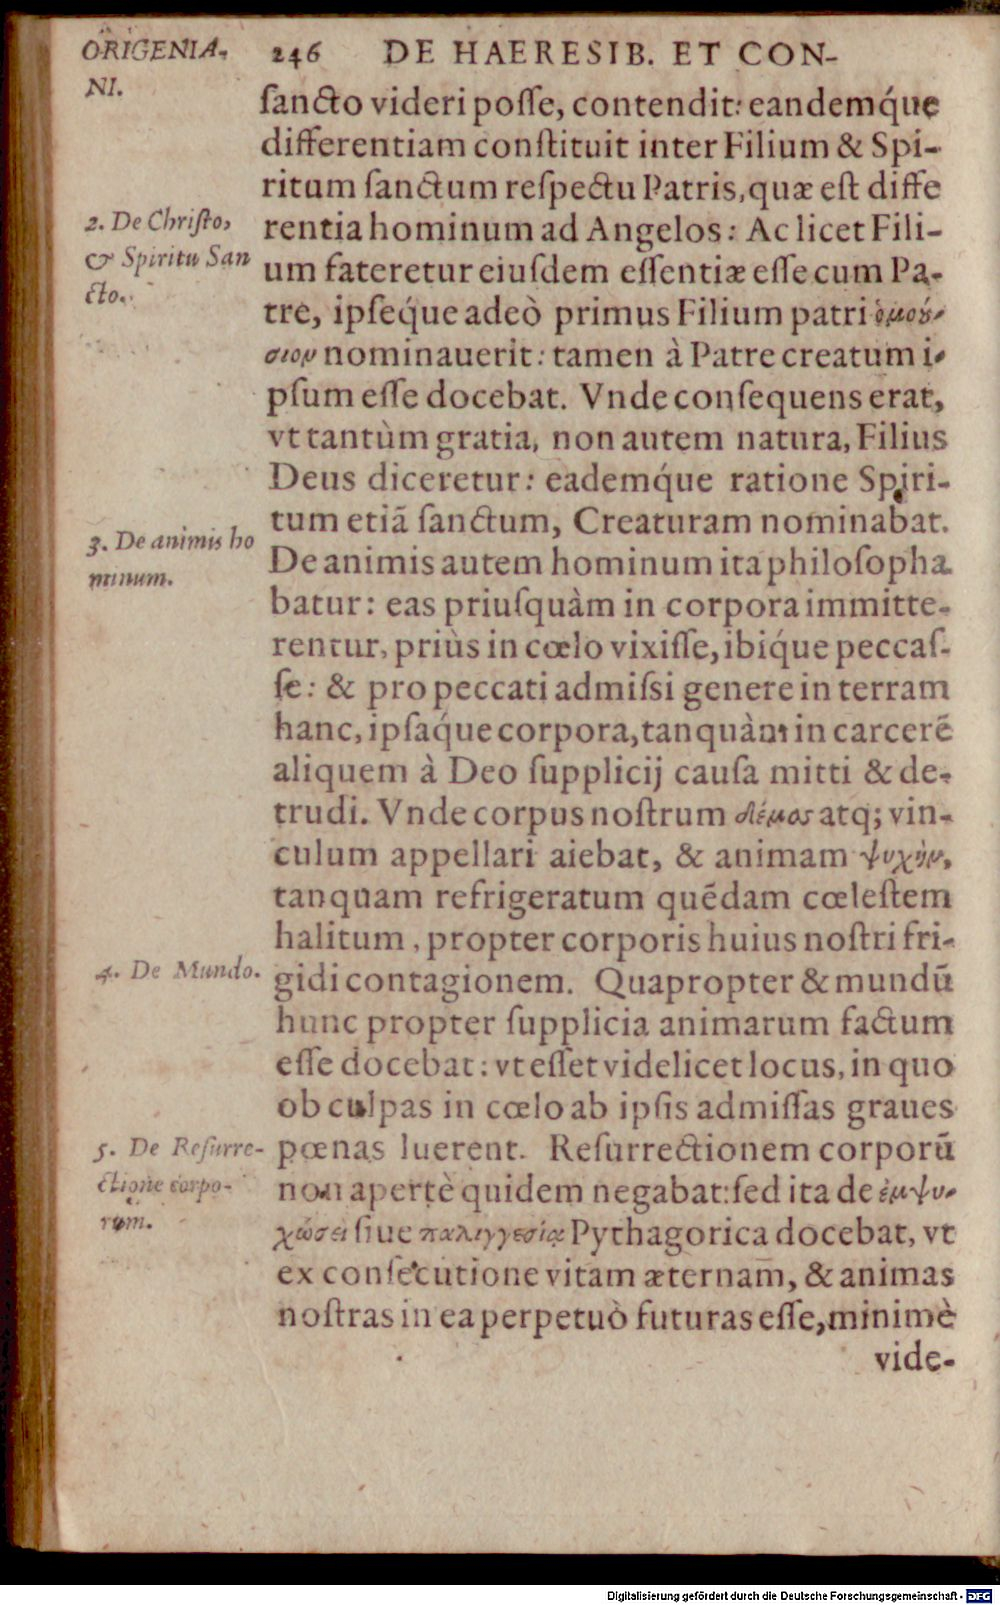 ORIGENIA-
NI.
246 DE HAERESIB. ET CON-
sancto videri posse, contendit: eandemq́ue
differentiam constituit inter Filium & Spi-
ritum sanctum respectu Patris, quæ est diffe
2. De Christo,
& Spiritu San
cto.
rentia hominum ad Angelos: Ac licet Fili-
um fateretur eiusdem essentiæ esse cum Pa-
tre, ipseq́ue adeò primus Filium patri ὁμοού-
σιον nominauerit: tamen à Patre creatum i-
psum esse docebat. Vnde consequens erat,
vt tantùm gratia, non autem natura, Filius
Deus diceretur: eademq́ue ratione Spiri-
tum etiã sanctum, Creaturam nominabat.
3. De animis ho
minum.
De animis autem hominum ita philosopha
batur: eas priusquàm in corpora immitte-
rentur, priùs in cœlo vixisse, ibiq́ue peccas-
se: & pro peccati admissi genere in terram
hanc, ipsaq́ue corpora, tanquàm in carcerẽ
aliquem à Deo supplicij causa mitti & de-
trudi. Vnde corpus nostrum δέμος atq; vin-
culum appellari aiebat, & animam ψυχὴν,
tanquam refrigeratum quẽdam cœlestem
halitum, propter corporis huius nostri fri-
4. De Mundo.
gidi contagionem. Quapropter & mundũ
hunc propter supplicia animarum factum
esse docebat: vt esset videlicet locus, in quo
ob culpas in cœlo ab ipsis admissas graues
5. De Resurre-
ctione corpo-
rum.
pœnas luerent. Resurrectionem corporũ
non apertè quidem negabat: sed ita de ἐμψυ-
χώσει siue παλιγγεσίᾳ Pythagorica docebat, vt
ex consecutione vitam æternam, & animas
nostras in ea perpetuò futuras esse, minimè
vide-
Digitalisierung gefördert durch die Deutsche Forschungsgemeinschaft - DFG